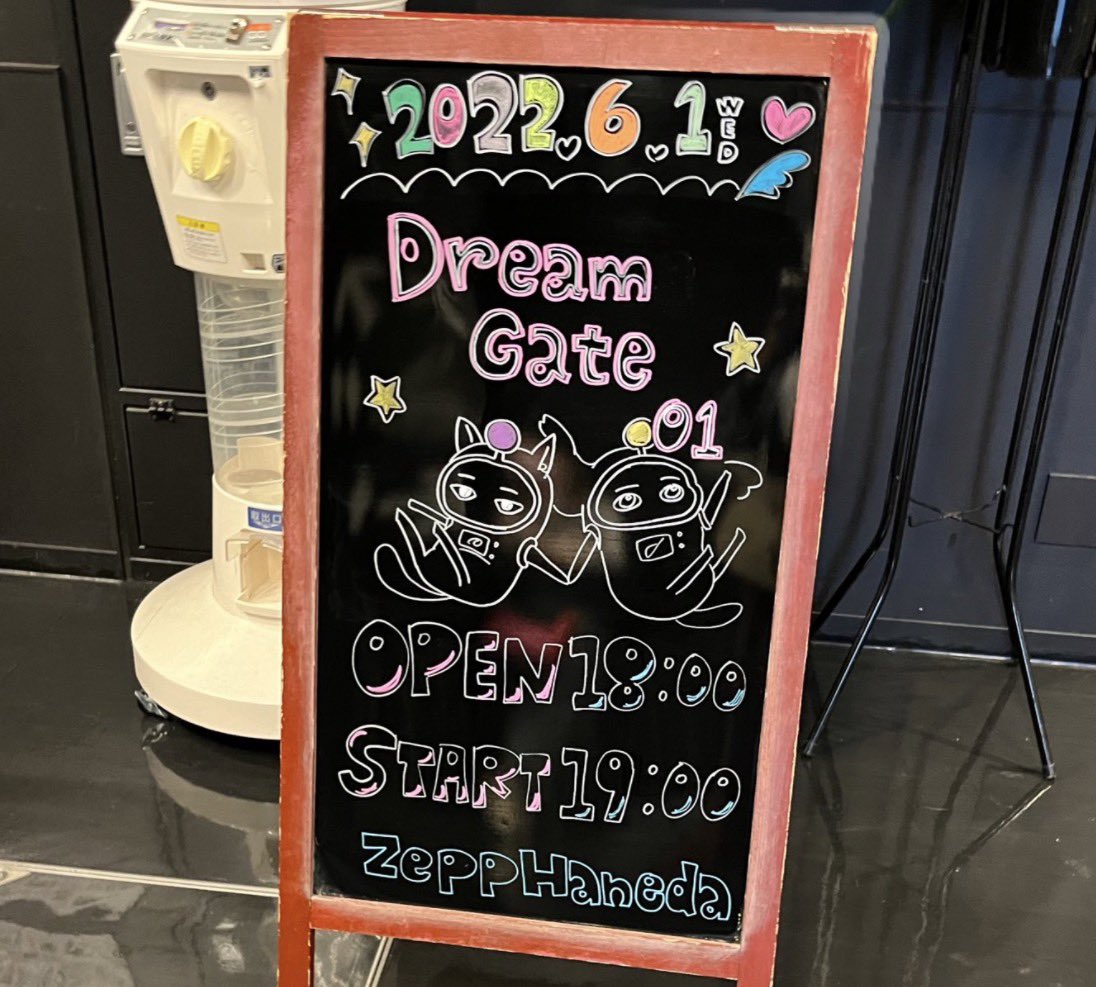 2022.6.1 WED
Dream
Gate
01
OPEN 18:00
START 19:00
ZeppHaneda
取出口